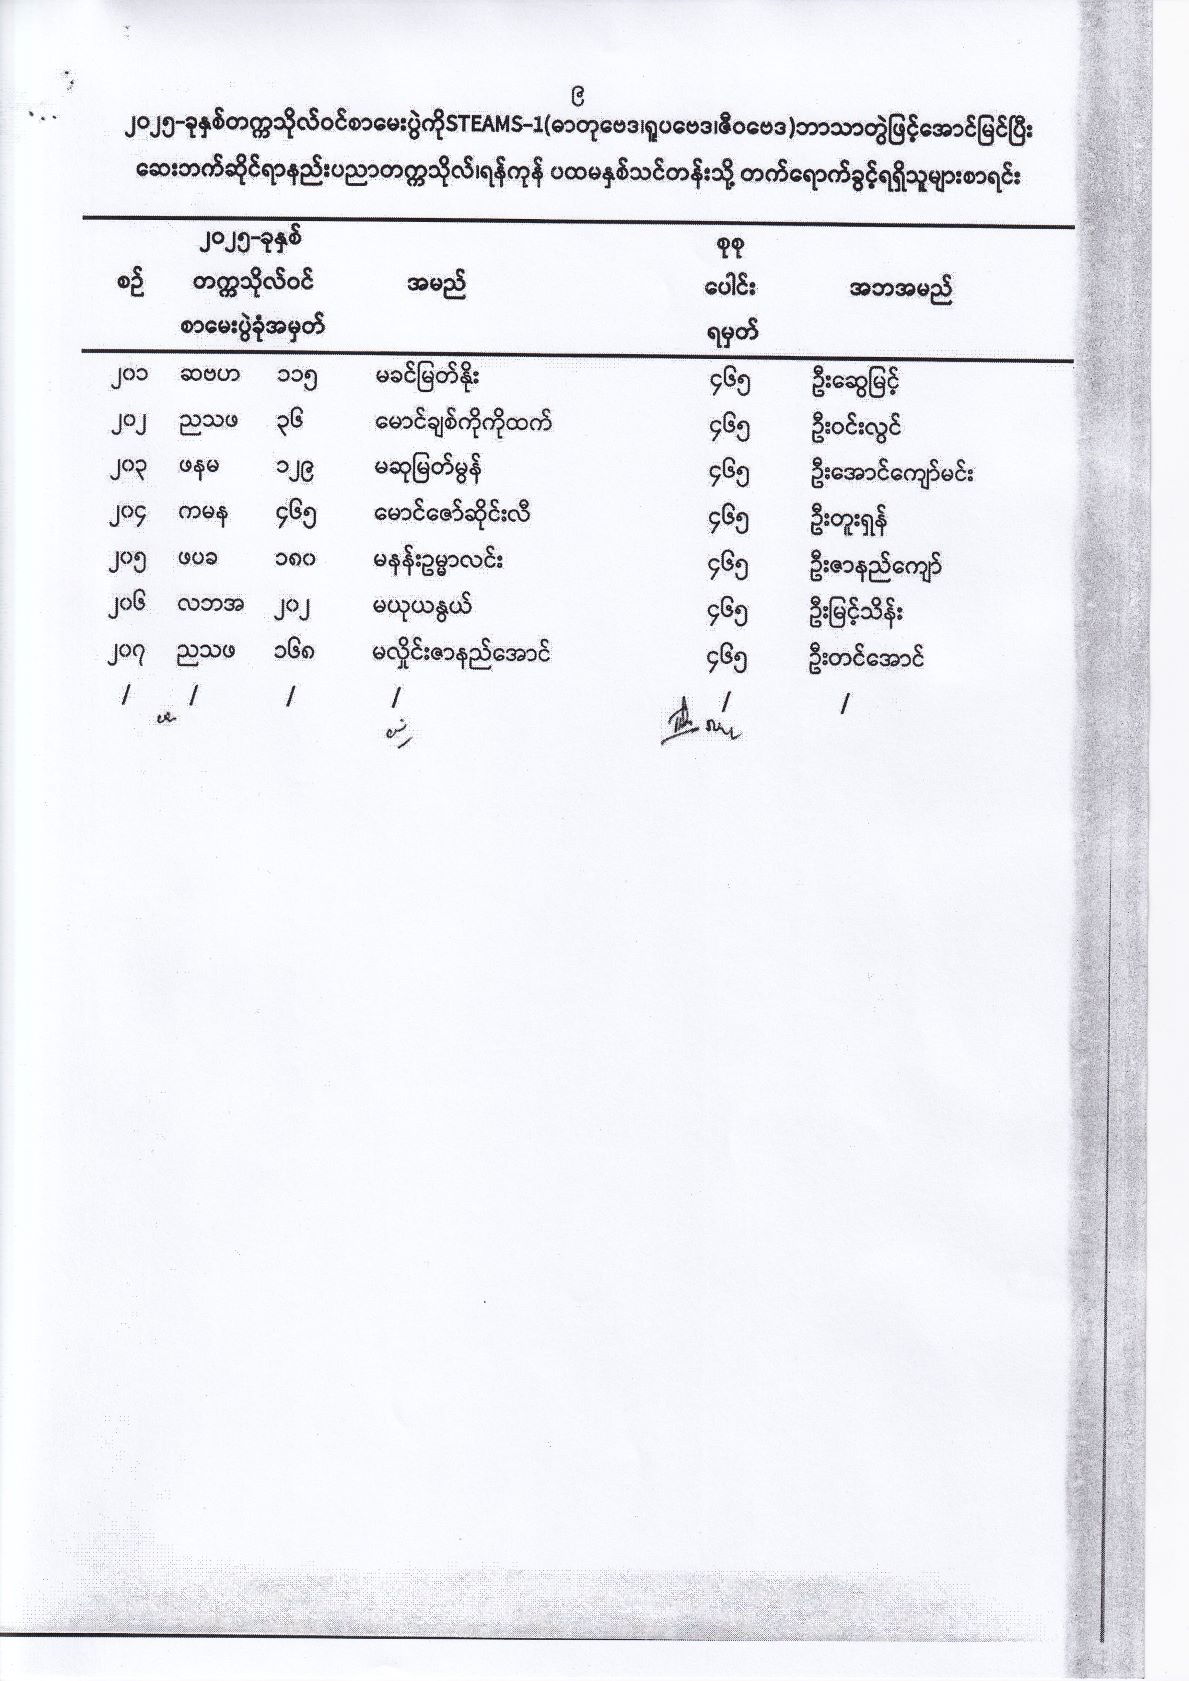 ၉
၂၀၂၅-ခုနှစ်တက္ကသိုလ်ဝင်စာမေးပွဲကိုSTEAMS-1(ဓာတုဗေဒ၊ရူပဗေဒ၊ဇီဝဗေဒ)ဘာသာတွဲဖြင့်အောင်မြင်ပြီး
ဆေးဘက်ဆိုင်ရာနည်းပညာတက္ကသိုလ်၊ရန်ကုန် ပထမနှစ်သင်တန်းသို့ တက်ရောက်ခွင့်ရရှိသူများစာရင်း
စဉ် ၂၀၂၅-ခုနှစ် တက္ကသိုလ်ဝင် စာမေးပွဲခုံအမှတ် အမည် စုစု ပေါင်း ရမှတ် အဘအမည်
၂၀၁ ဆဗဟ ၁၁၅ မခင်မြတ်နိုး ၄၆၅ ဦးဆွေမြင့်
၂၀၂ ညသဖ ၃၆ မောင်ချစ်ကိုကိုထက် ၄၆၅ ဦးဝင်းလွင်
၂၀၃ ဖနမ ၁၂၉ မဆုမြတ်မွန် ၄၆၅ ဦးအောင်ကျော်မင်း
၂၀၄ ကမန ၄၆၅ မောင်ဇော်ဆိုင်းလီ ၄၆၅ ဦးတူးရှန်
၂၀၅ ဖပခ ၁၈၀ မနန်းဥမ္မာလင်း ၄၆၅ ဦးဇာနည်ကျော်
၂၀၆ လဘအ ၂၀၂ မယုယနွယ် ၄၆၅ ဦးမြင့်သိန်း
၂၀၇ ညသဖ ၁၆၈ မလှိုင်းဇာနည်အောင် ၄၆၅ ဦးတင်အောင်
/ / / / / /